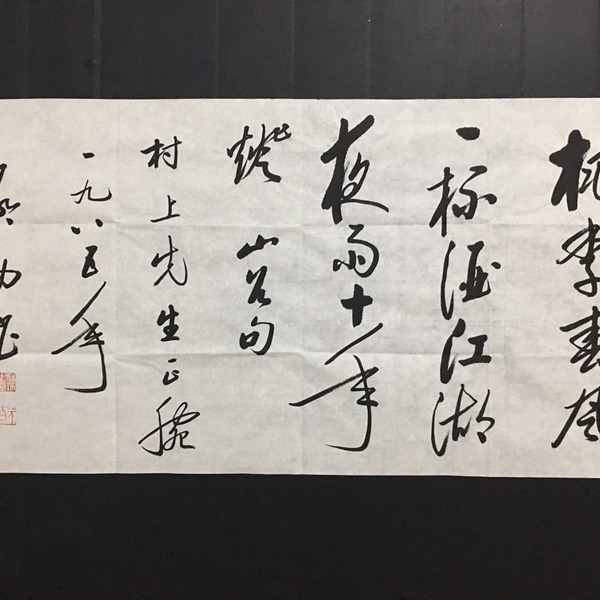 桃李春風
一杯酒江湖
夜雨十年
燈 山谷句
村上先生正腕
一九八五年
啓功